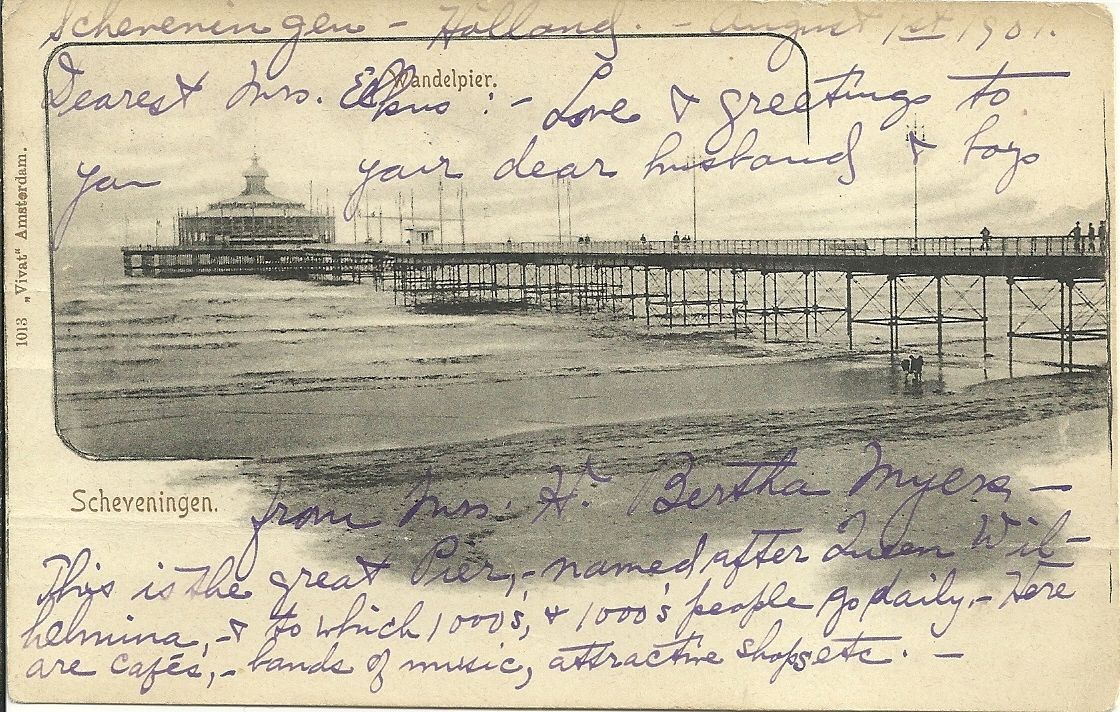 Scheveningen - Holland. - August 1st 1901.
Wandelpier.
Dearest Mrs. :- Love & greetings to
you your dear husband & boys
1013 „Vivat“ Amsterdam.
Scheveningen.
from Mrs. H. Bertha Myers -
This is the great Pier, - named after Queen Wil-
helmina, - & to which 1000's, & 1000's people go daily. - Here
are cafés, - bands of music, attractive shops etc. -